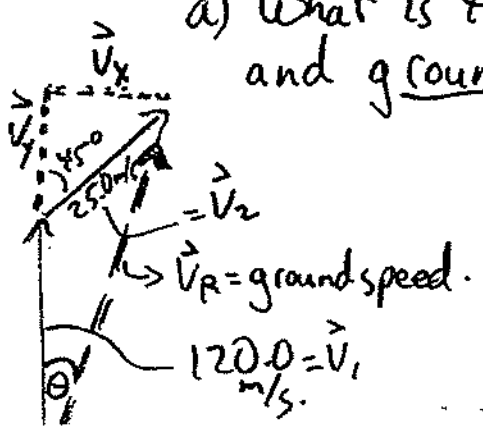 a) What is t
and groun
V⃗x
V⃗y
45°
25.0m/s
= V⃗2
V⃗R = groundspeed.
120.0 = V⃗1
m/s.
θ